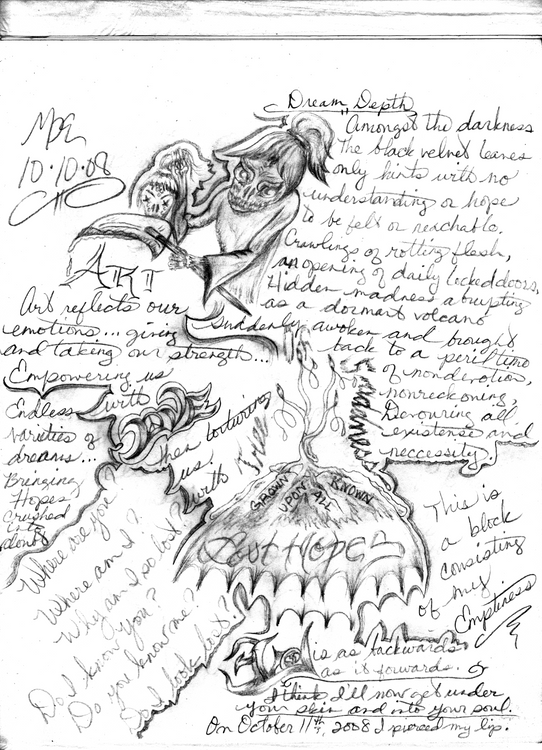 Dream "Depth"
Amongst the darkness
The black velvet leaves
only hints with no
understanding or hope
to be felt or reachable.
Crawlings of rotting flesh,
an opening of daily locked doors,
Hidden madness abrupting
as a dormant volcano
suddenly awoken and brought
back to a perishing
of nondevotion,
nonreckoning,
Devouring all
existense and
neccessity.
10.10.08
ART
Art reflects our
emotions... giving
and taking our strength...
Empowering us
with
Endless
varieties of
dreams...
Bringing
Hopes
Crushed
into
Then torturing
us
with
GROWN UPON ALL KNOWN
Lost Hopes
Where are you?
Where am I?
Why am I so lost?
Do I know you?
Do you know me?
Do I look lost?
This is
a block
consisting
of my
Emptiness
is as backwards
as it forwards.
I think I'll now get under
your skin and into your soul.
On October 11th, 2008 I pierced my lip.